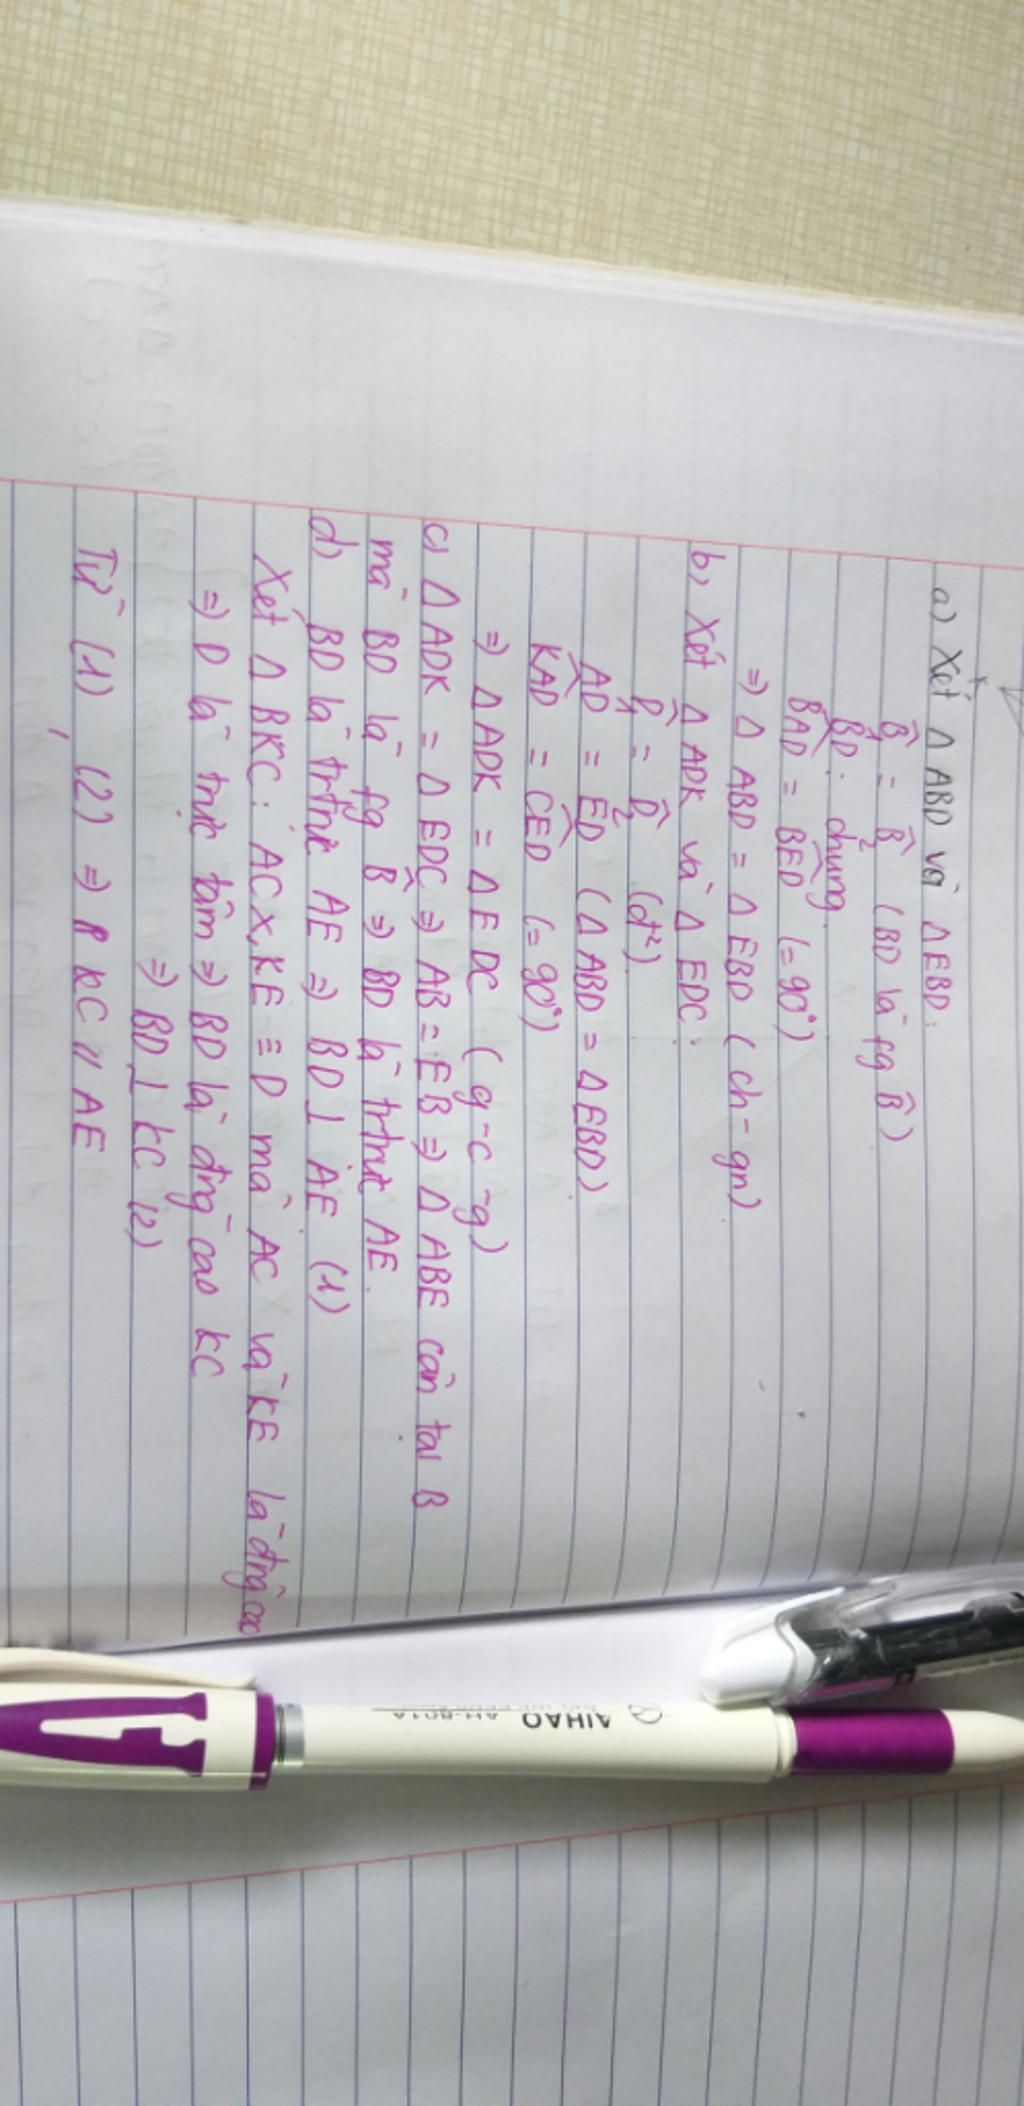 a) Xét Δ ABD và ΔEBD:
B̂₁ = B̂₂ (BD là fg B̂)
BD: chung
BAD̂ = BED̂ (=90°)
⇒ Δ ABD = Δ EBD (ch-gn)
b, Xét Δ ADK và Δ EDC:
D̂₁ = D̂₂ (đ²)
AD = ED (Δ ABD = Δ EBD)
KAD̂ = CED̂ (=90°)
⇒ Δ ADK = Δ EDC (g-c-g)
c) Δ ADK = Δ EDC ⇒ AB = EB ⇒ Δ ABE cân tại B
mà BD là fg B̂ ⇒ BD là trtrực AE.
d) BD là trtrực AE ⇒ BD ⊥ AE (1)
Xét Δ BKC: AC X, KE ≡ D mà AC và KE là đng cao
⇒ D là trực tâm ⇒ BD là đng cao KC
⇒ BD ⊥ KC (2)
Từ (1), (2) ⇒ KC // AE
AIHAO